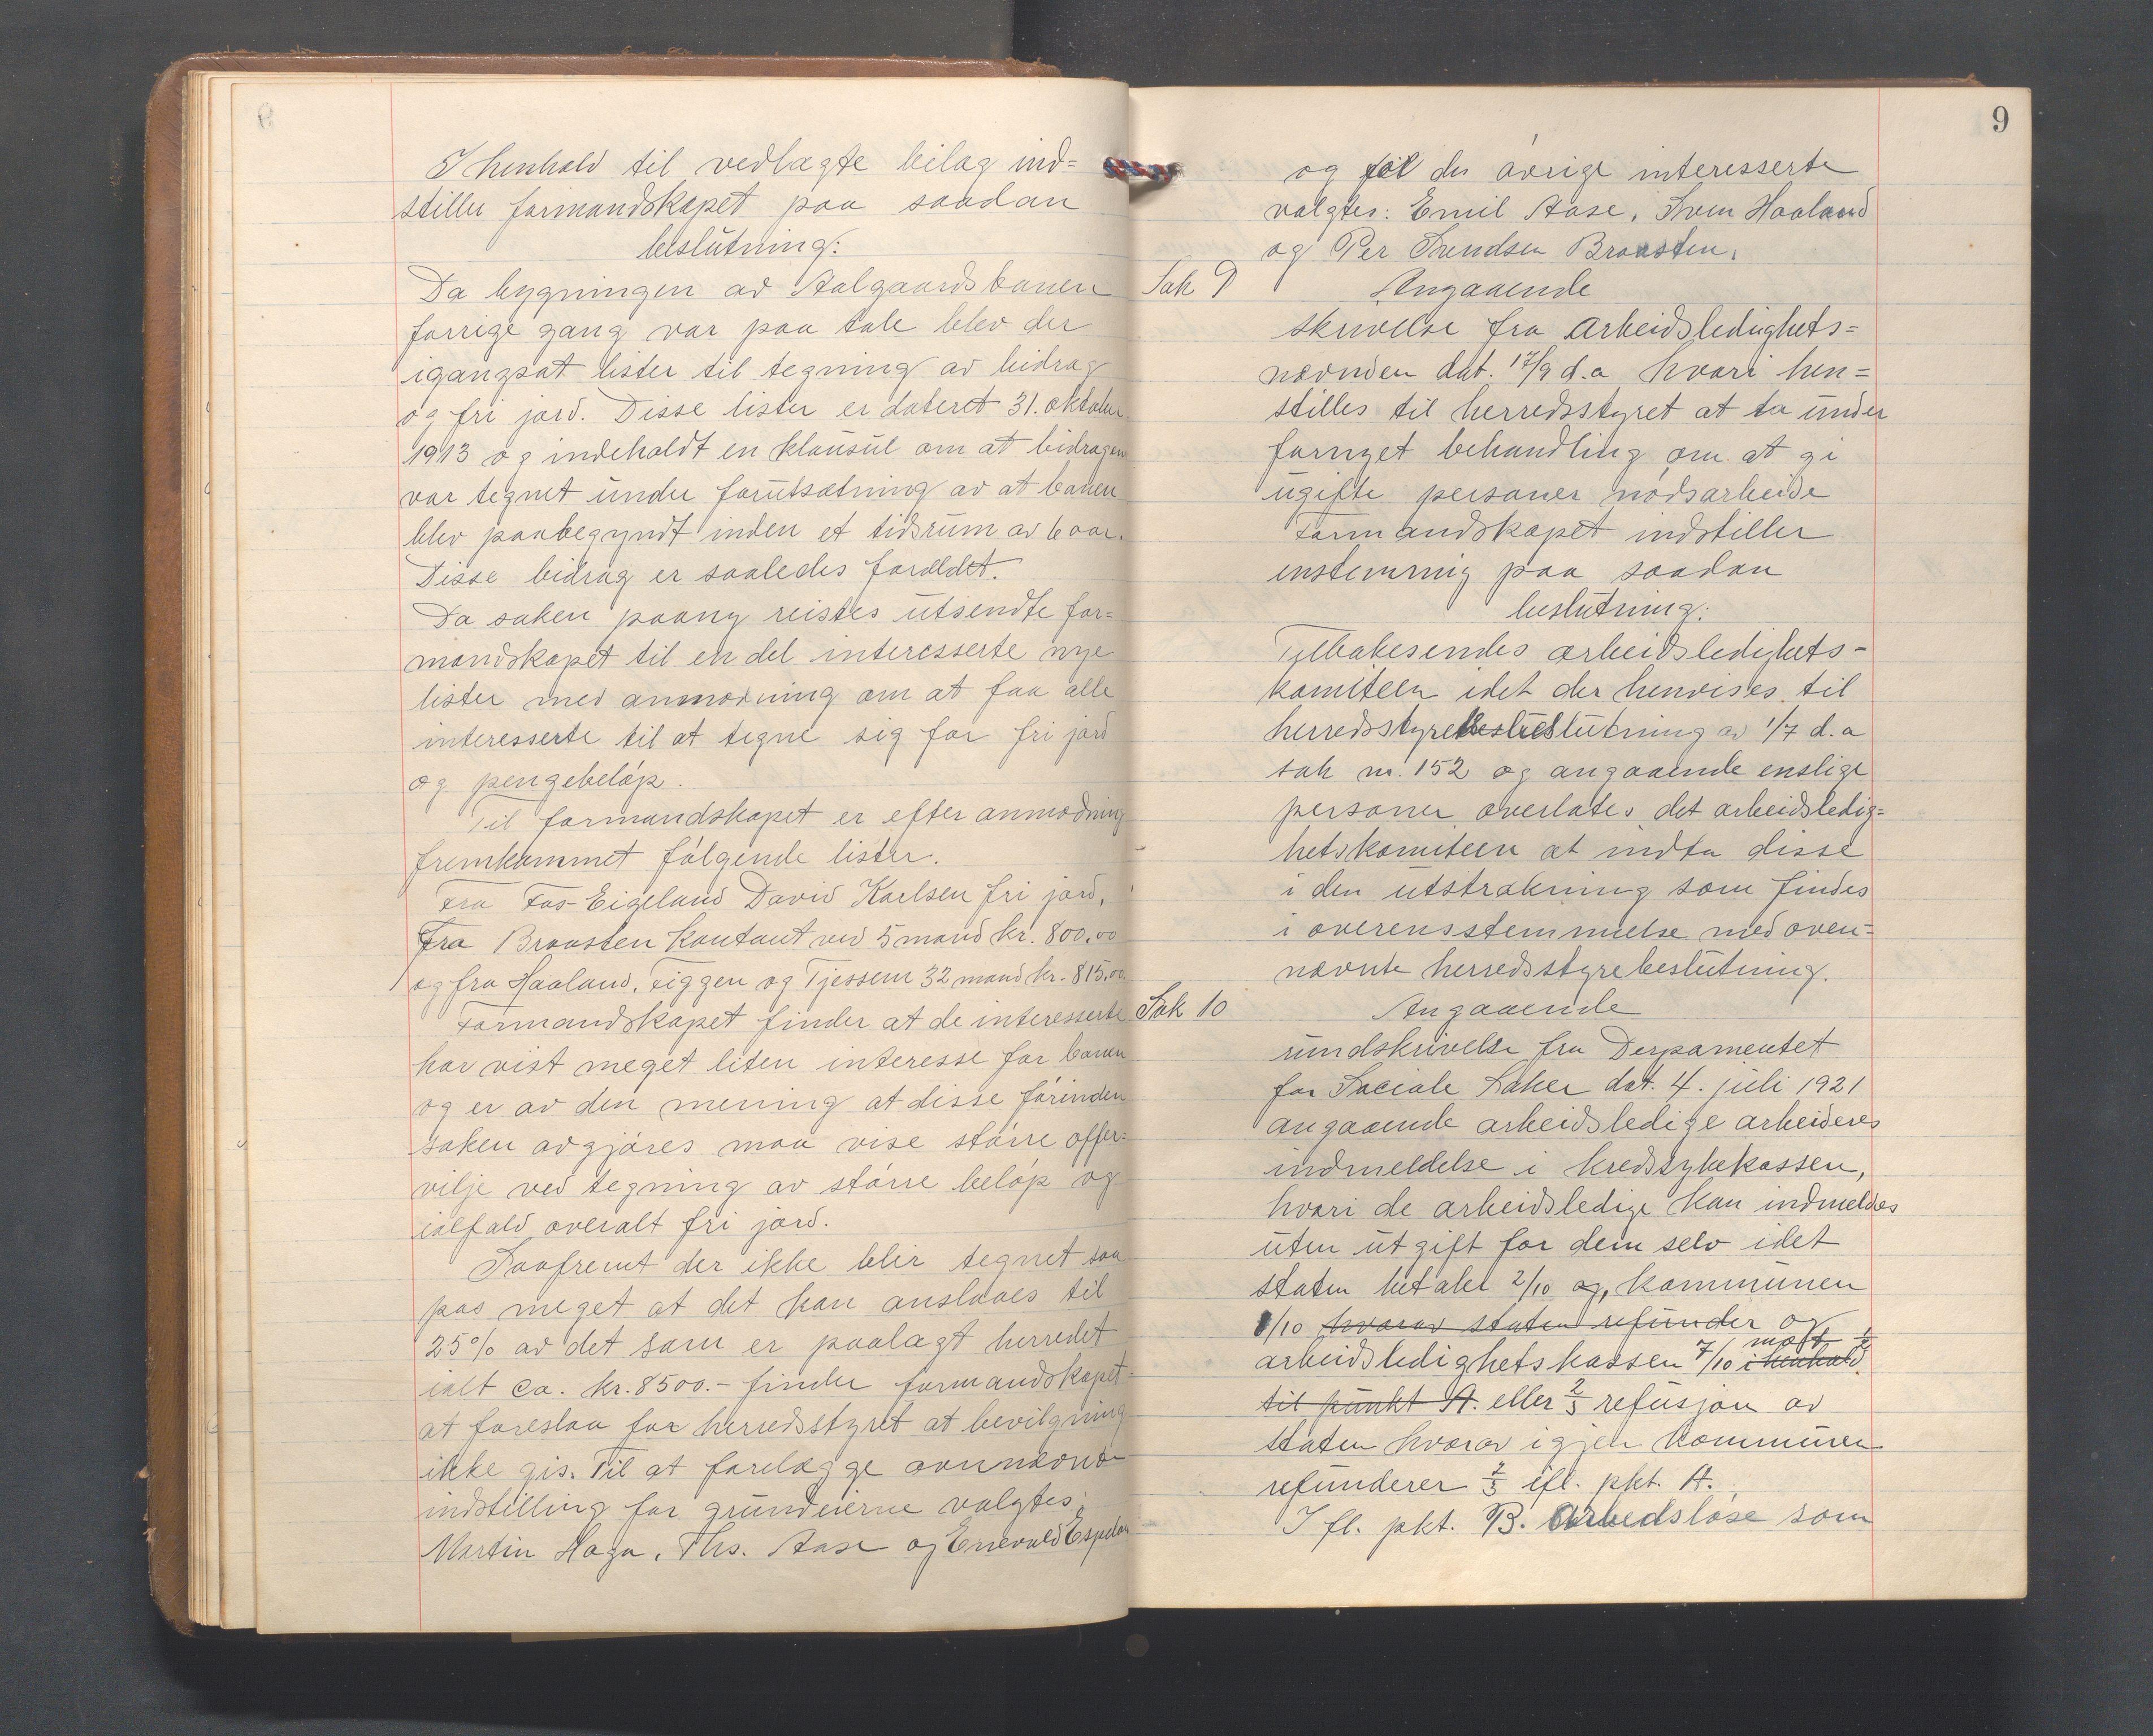 I henhold til vedlagte bilag ind=
stiller formandskapet paa saadan
beslutning:
Da bygningen av Aalgaardsbanen
forrige gang var paa tale blev der
igangsat lister til tegning av bidrag
og fri jord. Disse lister er dateret 31. oktober
1913 og indeholdt en klausul om at bidragene
var tegnet under forutsætning av at banen
blev paabegyndt inden et tidsrum av 6 aar.
Disse bidrag er saaledes forældet.
Da saken paany reistes utsendte for=
mandskapet til en del interesserte nye
lister med anmodning om at faa alle
interesserte til at tegne sig for fri jord
og pengebeløp.
Til formandskapet er efter anmodning
fremkommet følgende lister.
Fra Fos-Eigeland David Karlsen fri jord,
Fra Braasten kontant ved 5 mand kr. 800,00
og fra Haaland, Figgen og Tjessem 32 mand kr. 815,00
Formandskapet finder at de interesserte
har vist meget liten interesse for banen
og er av den mening at disse førinden
saken avgjøres maa vise større offer=
vilje ved tegning av større beløp og
ialfald overalt fri jord.
Saafremt der ikke blir tegnet saa
pas meget at det kan anslaaes til
25% av det som er paalagt herredet
ialt ca. kr. 8500.- finder formandskapet
at foreslaa for herredsstyret at bevilgning
ikke gis. Til at forelægge ovennævnte
indstilling for grundeierne valgtes:
Martin Haga, Ths. Aase og Enevald Espeland
9
og for de øvrige interesserte
valgtes: Emil Aase, Sven Haaland
og Per Svendsen Braasten.
Sak 9 Angaaende
skrivelse fra arbeidsledighets=
nævnden dat. 17/9 d.a hvori hen=
stilles til herredsstyret at ta under
fornyet behandling om at gi
ugifte personer nødsarbeide
Formandskapet indstiller
enstemmig paa saadan
beslutning:
Tilbakesendes arbeidsledighets-
komiteen idet der henvises til
herredsstyrebeslutning av 1/7 d.a
sak nr. 152 og angaaende enslige
personer overlates det arbeidsledig=
hetskomiteen at indta disse
i den utstrækning som findes
i overensstemmelse med oven=
nævnte herredsstyrebeslutning.
Sak 10 Angaaende
rundskrivelse fra Derpamentet
for Sociale Saker dat. 4. juli 1921
angaaende arbeidsledige arbeideres
indmeldelse i kredssykekassen,
hvori de arbeidsledige kan indmeldes
uten utgift for dem selv idet
staten betaler 2/10 og, kommunen
1/10 hvorav staten refunder og
arbeidsledighetskassen 7/10 i henhold mot 1/2
til punkt A. eller 2/3 refusjon av
staten hvorav igjen kommunen
refunderer 2/3 ifl. pkt. A.
I fl. pkt. B. Arbeidsløse som